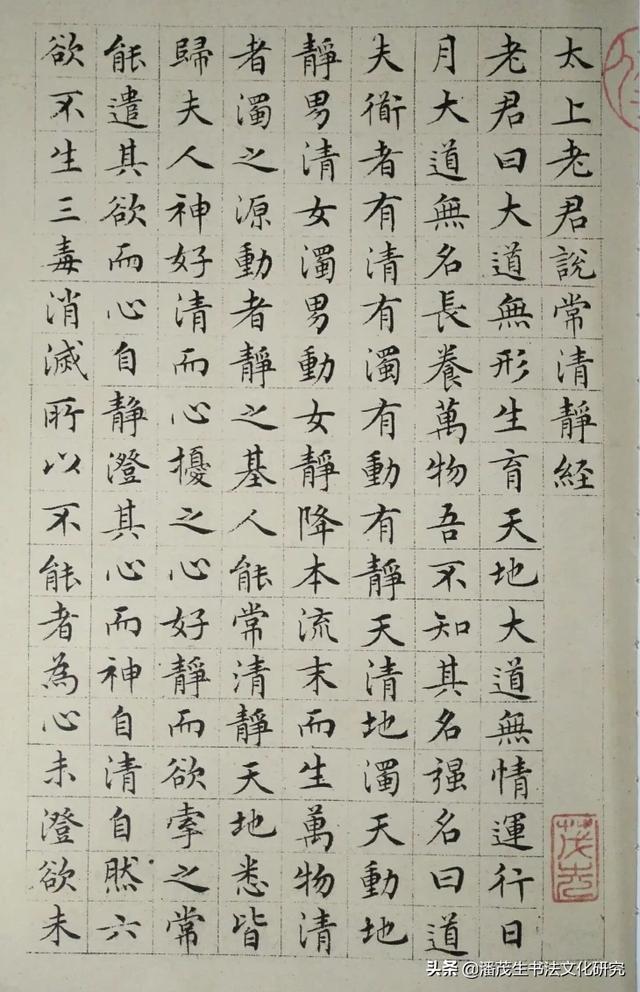 太上老君說常清靜経
老君曰大道無形生育天地大道無情運行日
月大道無名長養萬物吾不知其名强名曰道
夫衜者有清有濁有動有靜天清地濁天動地
靜男清女濁男動女靜降本流末而生萬物清
者濁之源動者靜之基人能常清靜天地悉皆
歸夫人神好清而心擾之心好靜而欲牽之常
能遣其欲而心自静澄其心而神自清自然六
欲不生三毒消滅所以不能者為心未澄欲未
茂生
头条 @潘茂生书法文化研究